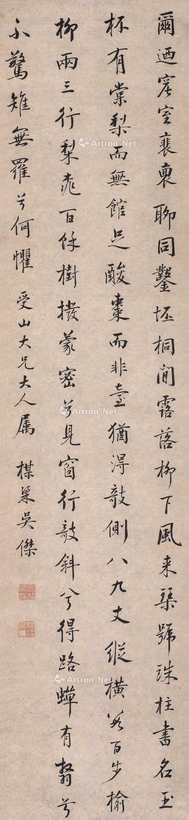 爾迺窟室裵褢聊同鑿坯桐間露落柳下風来琹號珠柱書名玉
杯有棠梨而無館足酸棗而非臺猶得敧側八九丈縱橫數百步榆
柳兩三行梨桃百餘樹撥蒙密兮見窗行敧斜兮得路蟬有翳兮
不驚雉無羅兮何懼 受山大兄大人属 楳巢吳傑